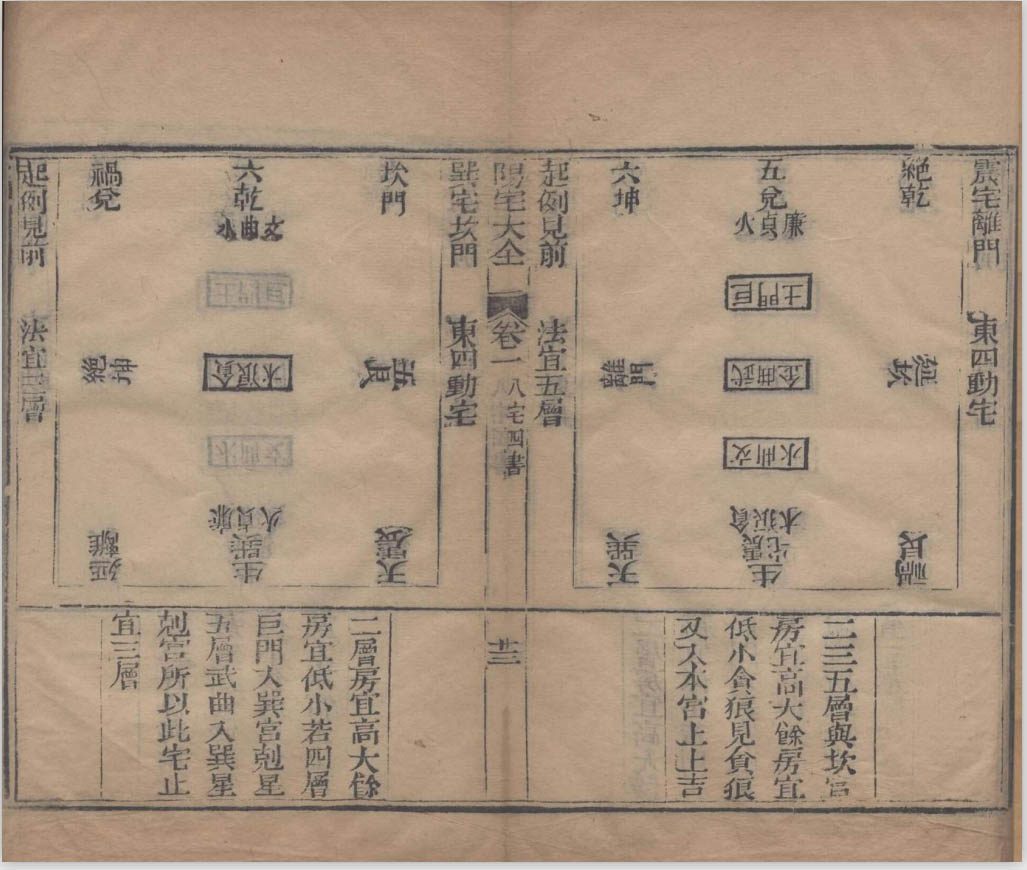 震宅離門 東四動宅
絕乾
延坎
禍艮
五兌
廉貞火
巨門土
武曲金
文曲水
貪狼木
生震宅
六坤
離門
天巽
起例見前 法宜五層
二三五層與坎宮
房宜高大餘房宜
低小貪狼見貪狼
又入本宮上上吉
陽宅大全 卷一 八宅四書 廿三
巽宅坎門 東四動宅
坎門
天震
六乾
文曲水
巨門土
貪狼木
文曲水
廉貞火
生巽
禍兌
絕坤
延離
起例見前 法宜三層
二層房宜高大餘
房宜低小若四層
巨門入巽宮剋星
五層武曲入巽星
剋宮所以此宅止
宜三層